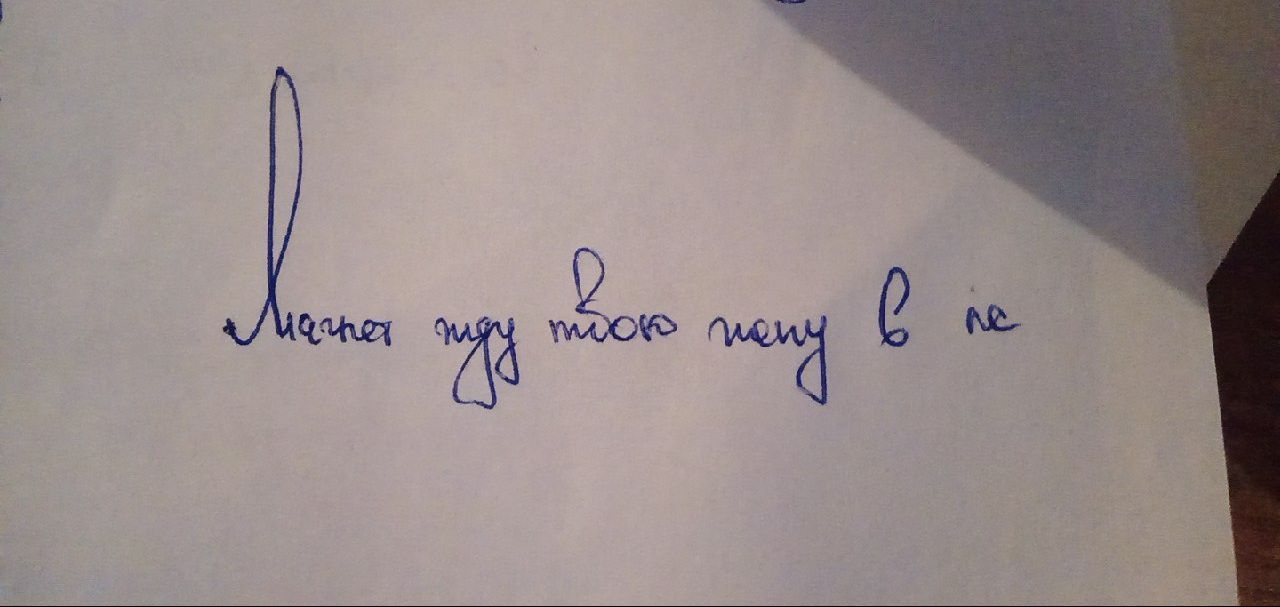 жду твою жену в лс